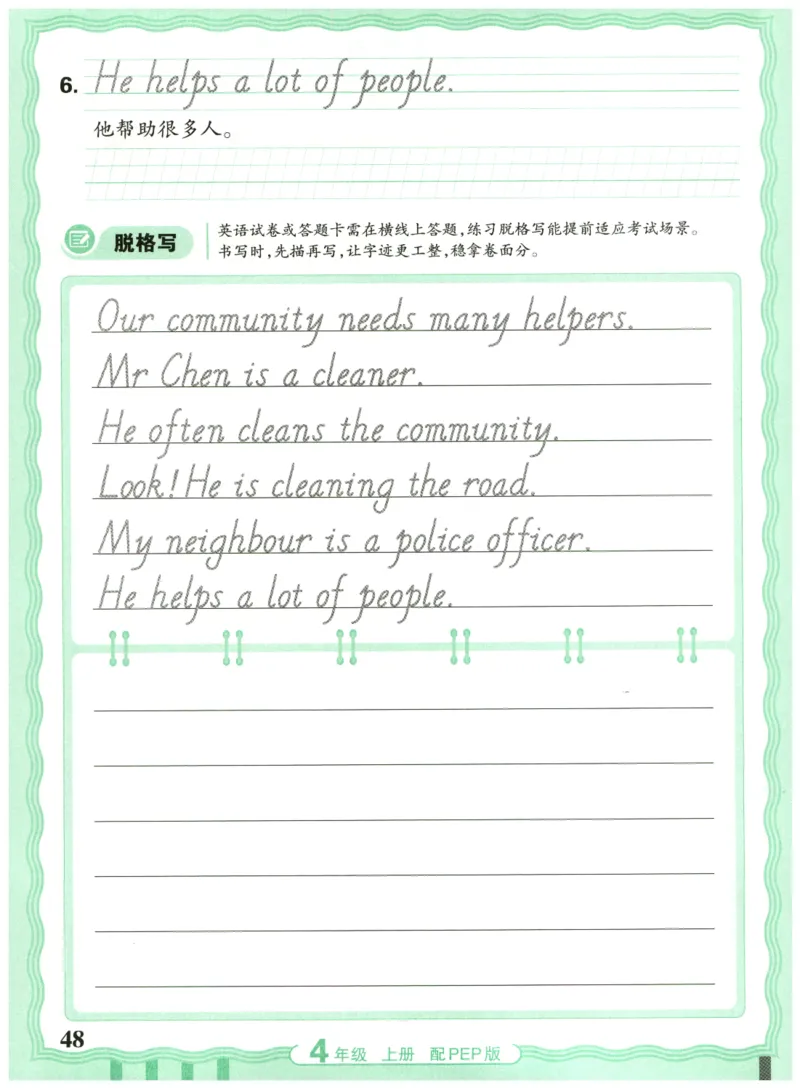 6. He helps a lot of people.
他帮助很多人。
脱格写
英语试卷或答题卡需在横线上答题,练习脱格写能提前适应考试场景。
书写时,先描再写,让字迹更工整,稳拿卷面分。
Our community needs many helpers.
Mr Chen is a cleaner.
He often cleans the community.
Look! He is cleaning the road.
My neighbour is a police officer.
He helps a lot of people.
48
4年级 上册 配PEP版